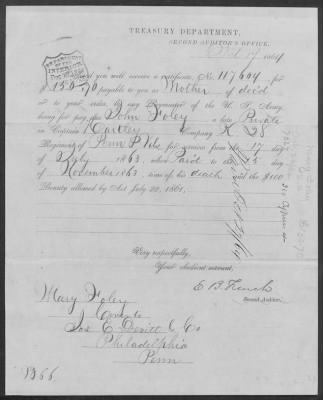 TREASURY DEPARTMENT,
SECOND AUDITOR'S OFFICE,
1864
DEPARTMENT
OF THE
INTERIOR
you will receive a certificate, No. 117604, for
$ 150 70 payable to you as Mother of dec'd
or to your order, by any Paymaster of the U. S. Army,
being for pay, &c., John Foley a late Private
in Captain Company K 28
Regiment of Penn for service from the 17 day
of July 1863, when Paid to the 25 day
of November 1863, time of his death with the $100
Bounty allowed by Act July 22, 1861.
Very respectfully,
Your obedient servant,
E B French
Second Auditor.
Mary Foley
Care of
Jos E Devitt & Co
Philadelphia
Penn
1366